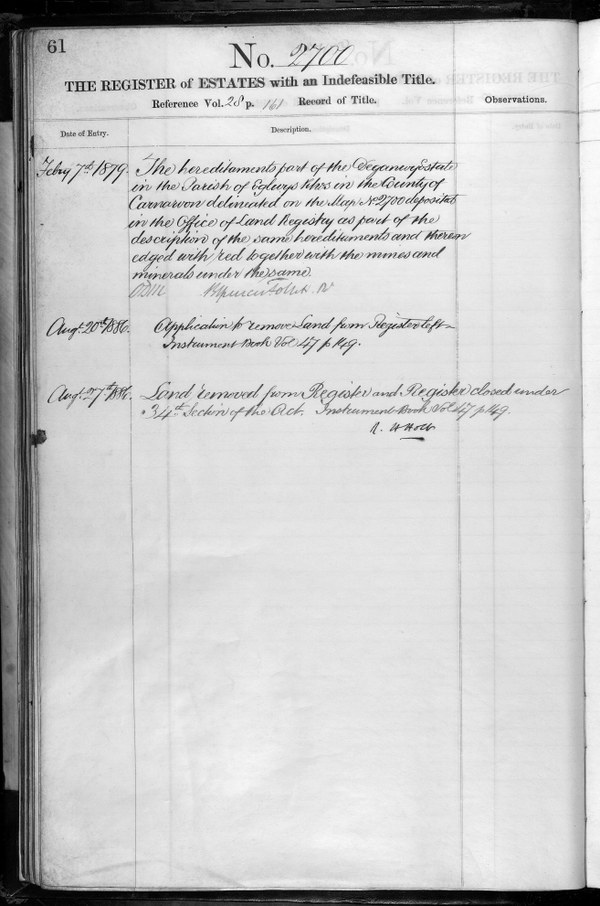 61
No. 2700
THE REGISTER of ESTATES with an Indefeasible Title.
Reference Vol. 28 p. 161 Record of Title.
Observations.
Date of Entry.
Description.
Febry 7th 1879.
The hereditaments part of the Deganwy Estate
in the Parish of Eglwys Rhos in the County of
Carnarvon delineated on the Map No 2700 deposited
in the Office of Land Registry as part of the
description of the same hereditaments and therein
edged with red together with the mines and
minerals under the same.
Follett. R
Augt. 20th 1886.
Application to remove Land from Register left
Instrument Book Vol 47 p 149.
Augt. 27th 1886.
Land removed from Register and Register closed under
34th Section of the Act. Instrument Book Vol 47 p 149.
R. H Holt